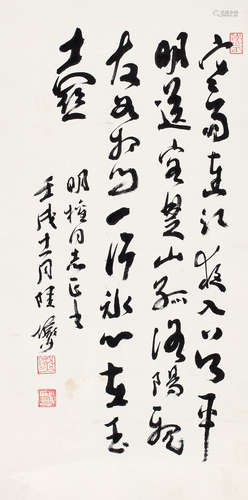 寒雨連江夜入吳平
明送客楚山孤洛陽親
友如相問一片冰心在玉
壺
明權同志正之
壬戌十一月陸